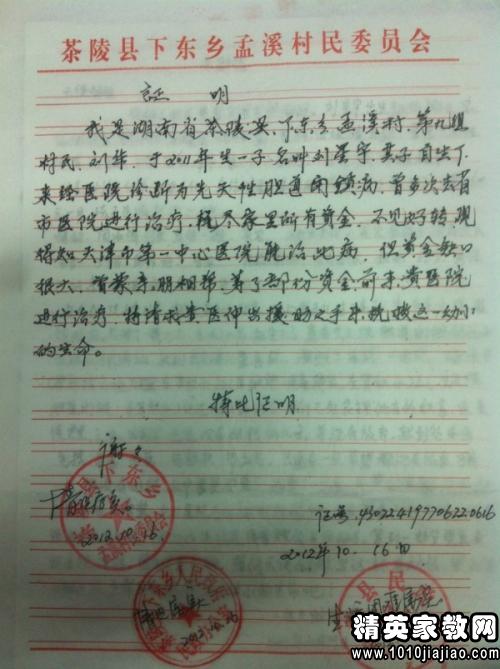 茶陵县下东乡孟溪村民委员会
证 明
我是湖南省茶陵县、下东乡孟溪村，第九组
村民，刘华，于2011年生一子名叫刘星宇，其子自生下
来经医院诊断为先天性胆道闭锁病，曾多次去省
市医院进行治疗，耗尽家里所有资金，不见好转，现
得知天津市第一中心医院能治此病，但资金缺口
很大，曾蒙亲朋相帮，筹了部份资金前来贵医院
进行治疗，特请求贵医伸出援助之手来挽救这一幼小
的生命。
特此证明
谢谢
下东乡
孟溪村民委员会
2012.10.16
证号：430224197706220616
2012年10.16日
下东乡人民政府
情况属实
2012.10.16
县民
精英家教网
www.1010jiajiao.com